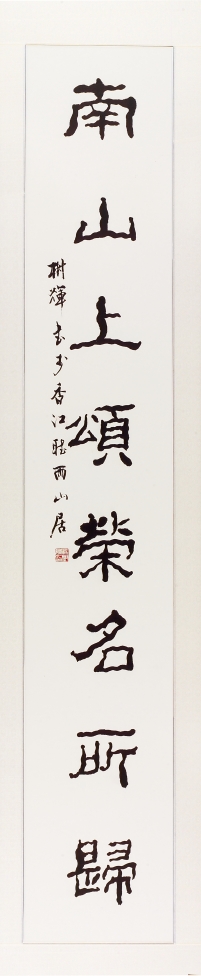 南山上頌榮名所歸
樹輝書於香江聽雨山居